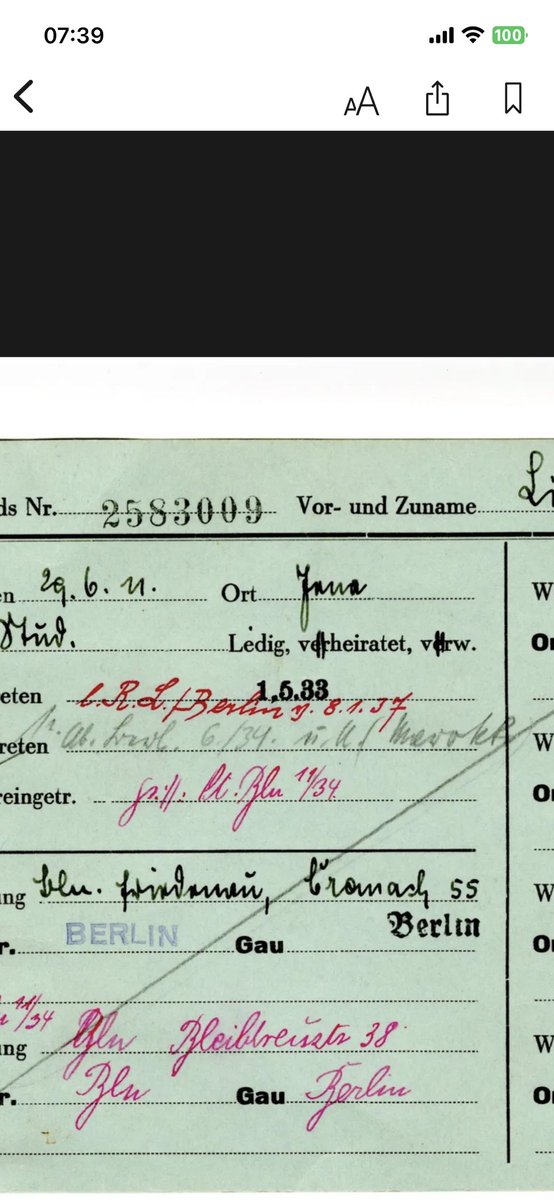 07:39 100
AA
ds Nr. 2583009 Vor- und Zuname Li
en 29.6.11. Ort Jena W
Stud. Ledig, verheiratet, verw. Or
eten 1.5.33
l. R.L./Berlin v. 8.1.37
reten 6/34. u. W
reingetr. lt. Bln 11/34 Or
ung Bln. Friedenau, Cranach 55 W
r. BERLIN Gau Berlin O
11/34
ung Bln Bleibtreustr 38 W
r. Bln Gau Berlin Or